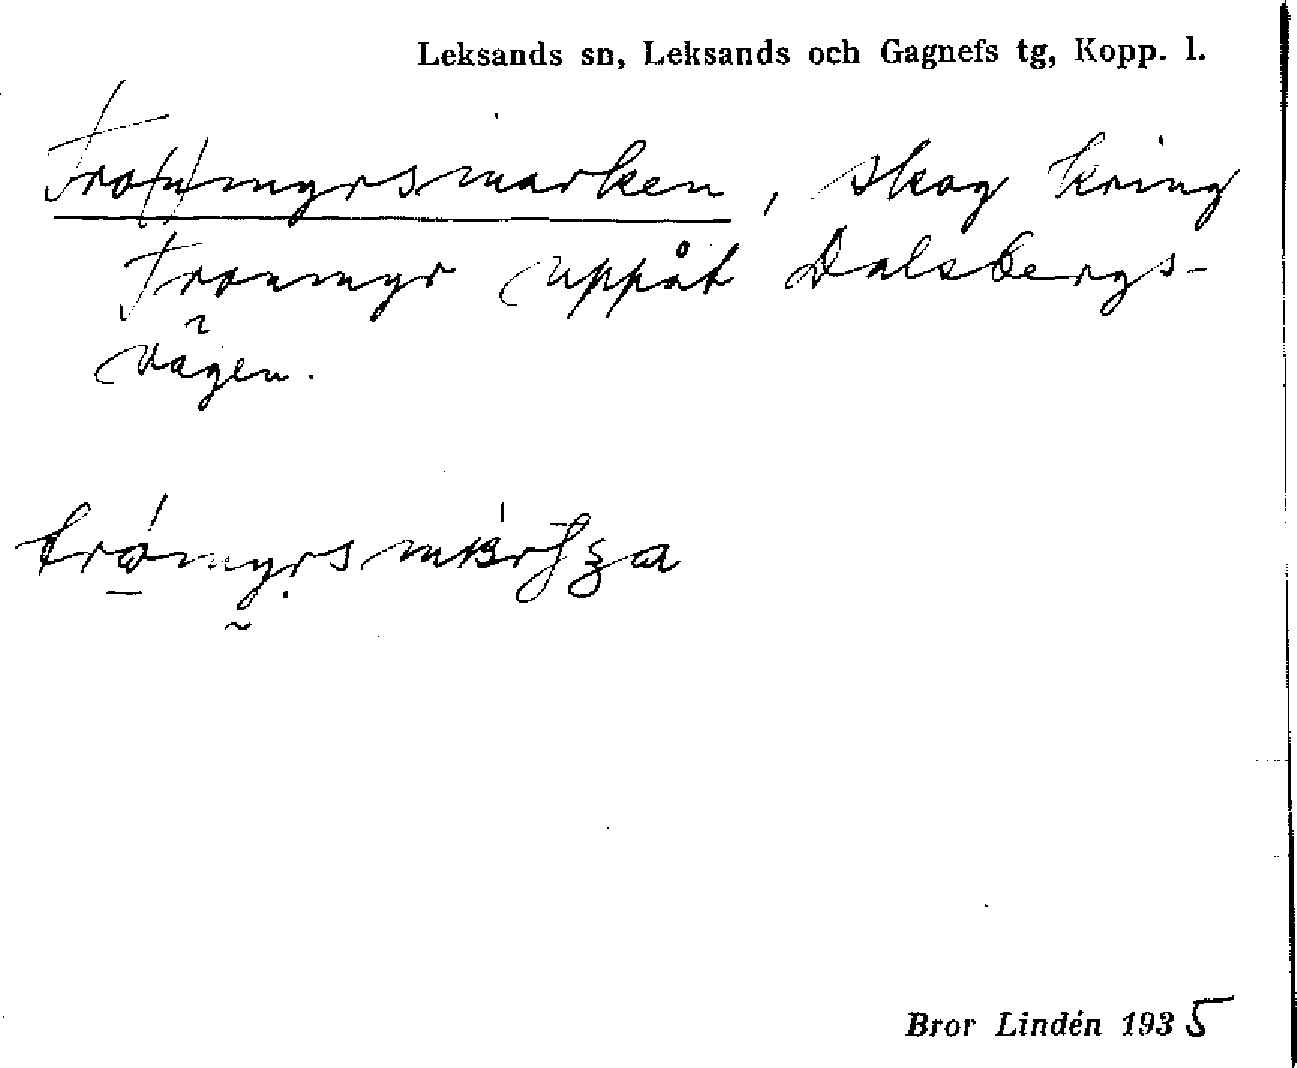 Leksands sn, Leksands och Gagnefs tg, Kopp. l.
Fro/n/myrsmarken, skog kring
Fronmyr uppåt Dalsbergs-
vägen.
Bror Lindén 1935